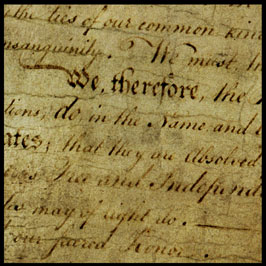 the ties of our common kin
onsanguinity. We must, t
We, therefore, the
tions, do, in the Name, and
ates; that they are Absolved
Free and Independ
may of right do.
our sacred Honor.